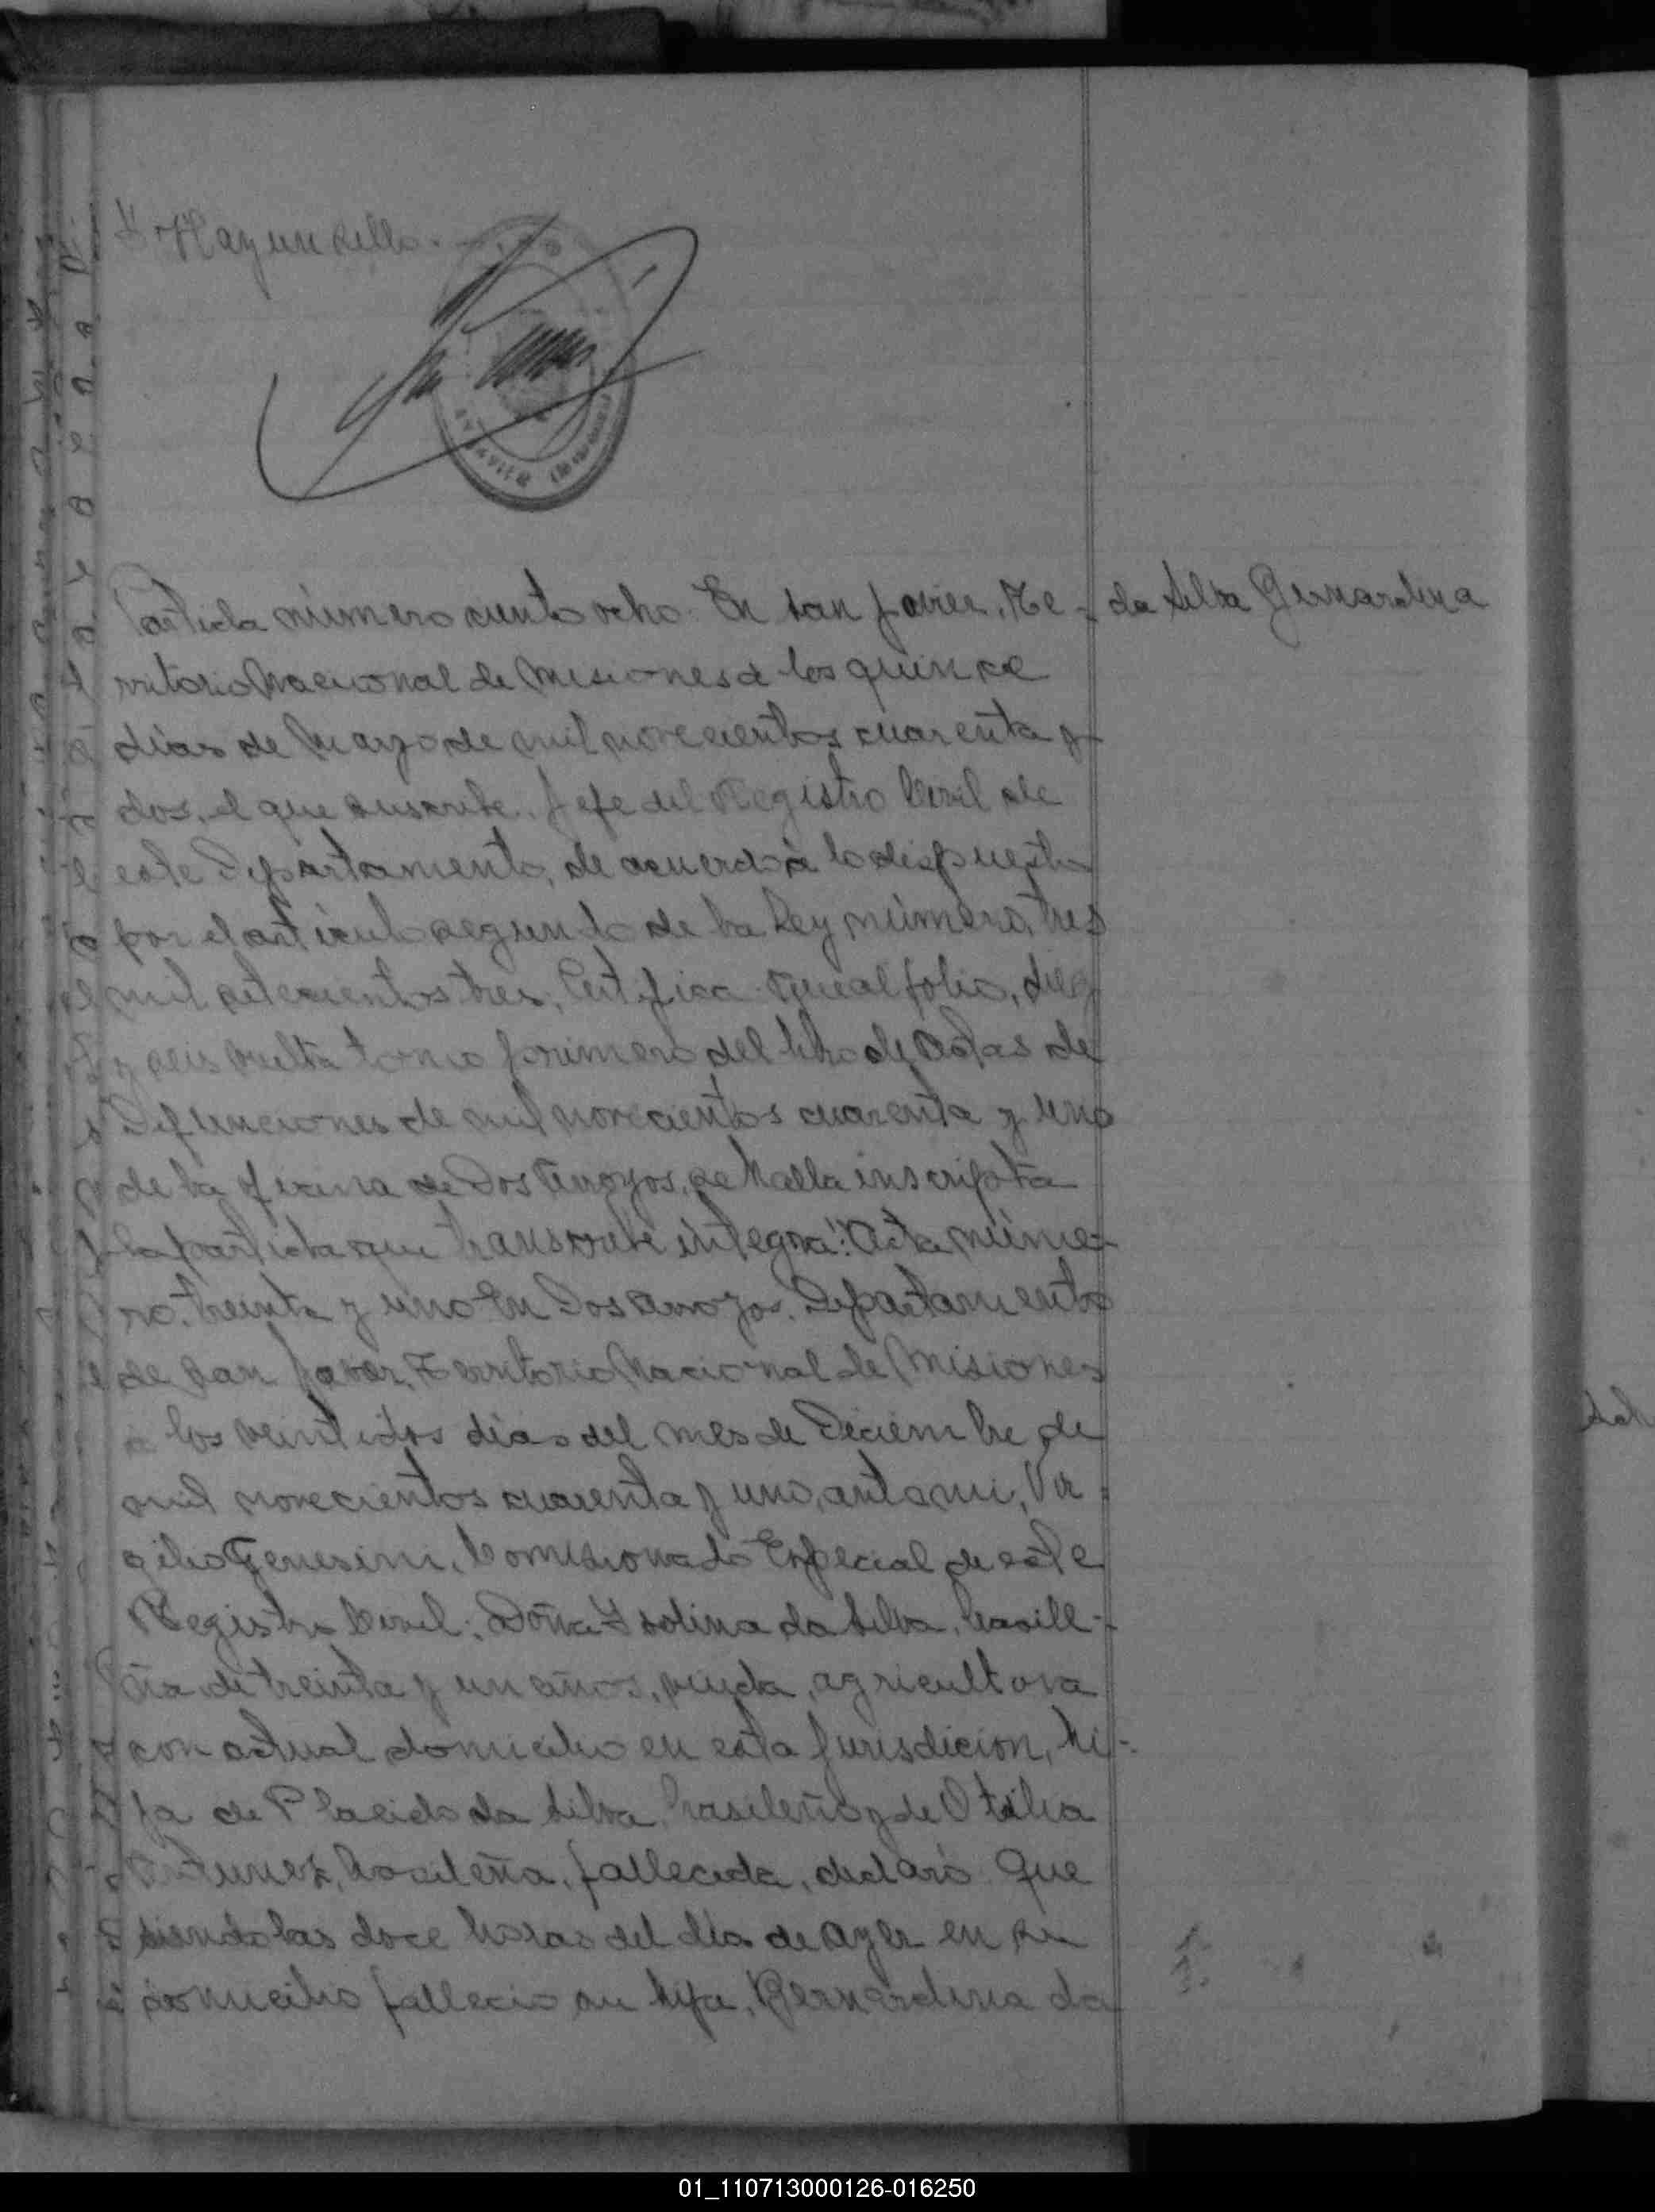 Hay un sello.
Partida número ciento ocho. En San Javier, Te-
da Silva Bernardina
rritorio Nacional de Misiones a los quince
días de Mayo de mil novecientos cuarenta y
dos, el que suscribe, Jefe del Registro Civil de
este Departamento, de acuerdo a lo dispuesto
por el artículo segundo de la Ley número, tres
mil setecientos tres, Certifica: Que al folio, diez
y seis vuelta tomo primero del libro de Actas de
Defunciones de mil novecientos cuarenta y uno
de la oficina de Dos Arroyos, se halla inscripta
la partida que transcribe integra: "Acta núme-
ro. treinta y uno En Dos Arroyos. Departamento
de San Javier, Territorio Nacional de Misiones
a los veintidos días del mes de Diciembre de
mil novecientos cuarenta y uno, ante mi, Vir-
gilio Genesini, Comisionado Especial de este
Registro Civil; Doña Isolina da Silva, brasile-
ña de treinta y un años, viuda, agricultora
con actual domicilio en esta Jurisdicion, hi-
ja de Placido da Silva, brasileño y de Otilia
Antunez, brasileña, fallecida, declaró: Que
siendo las doce horas del día de ayer en su
domicilio fallecio su hija, Bernardina da
01_110713000126-016250